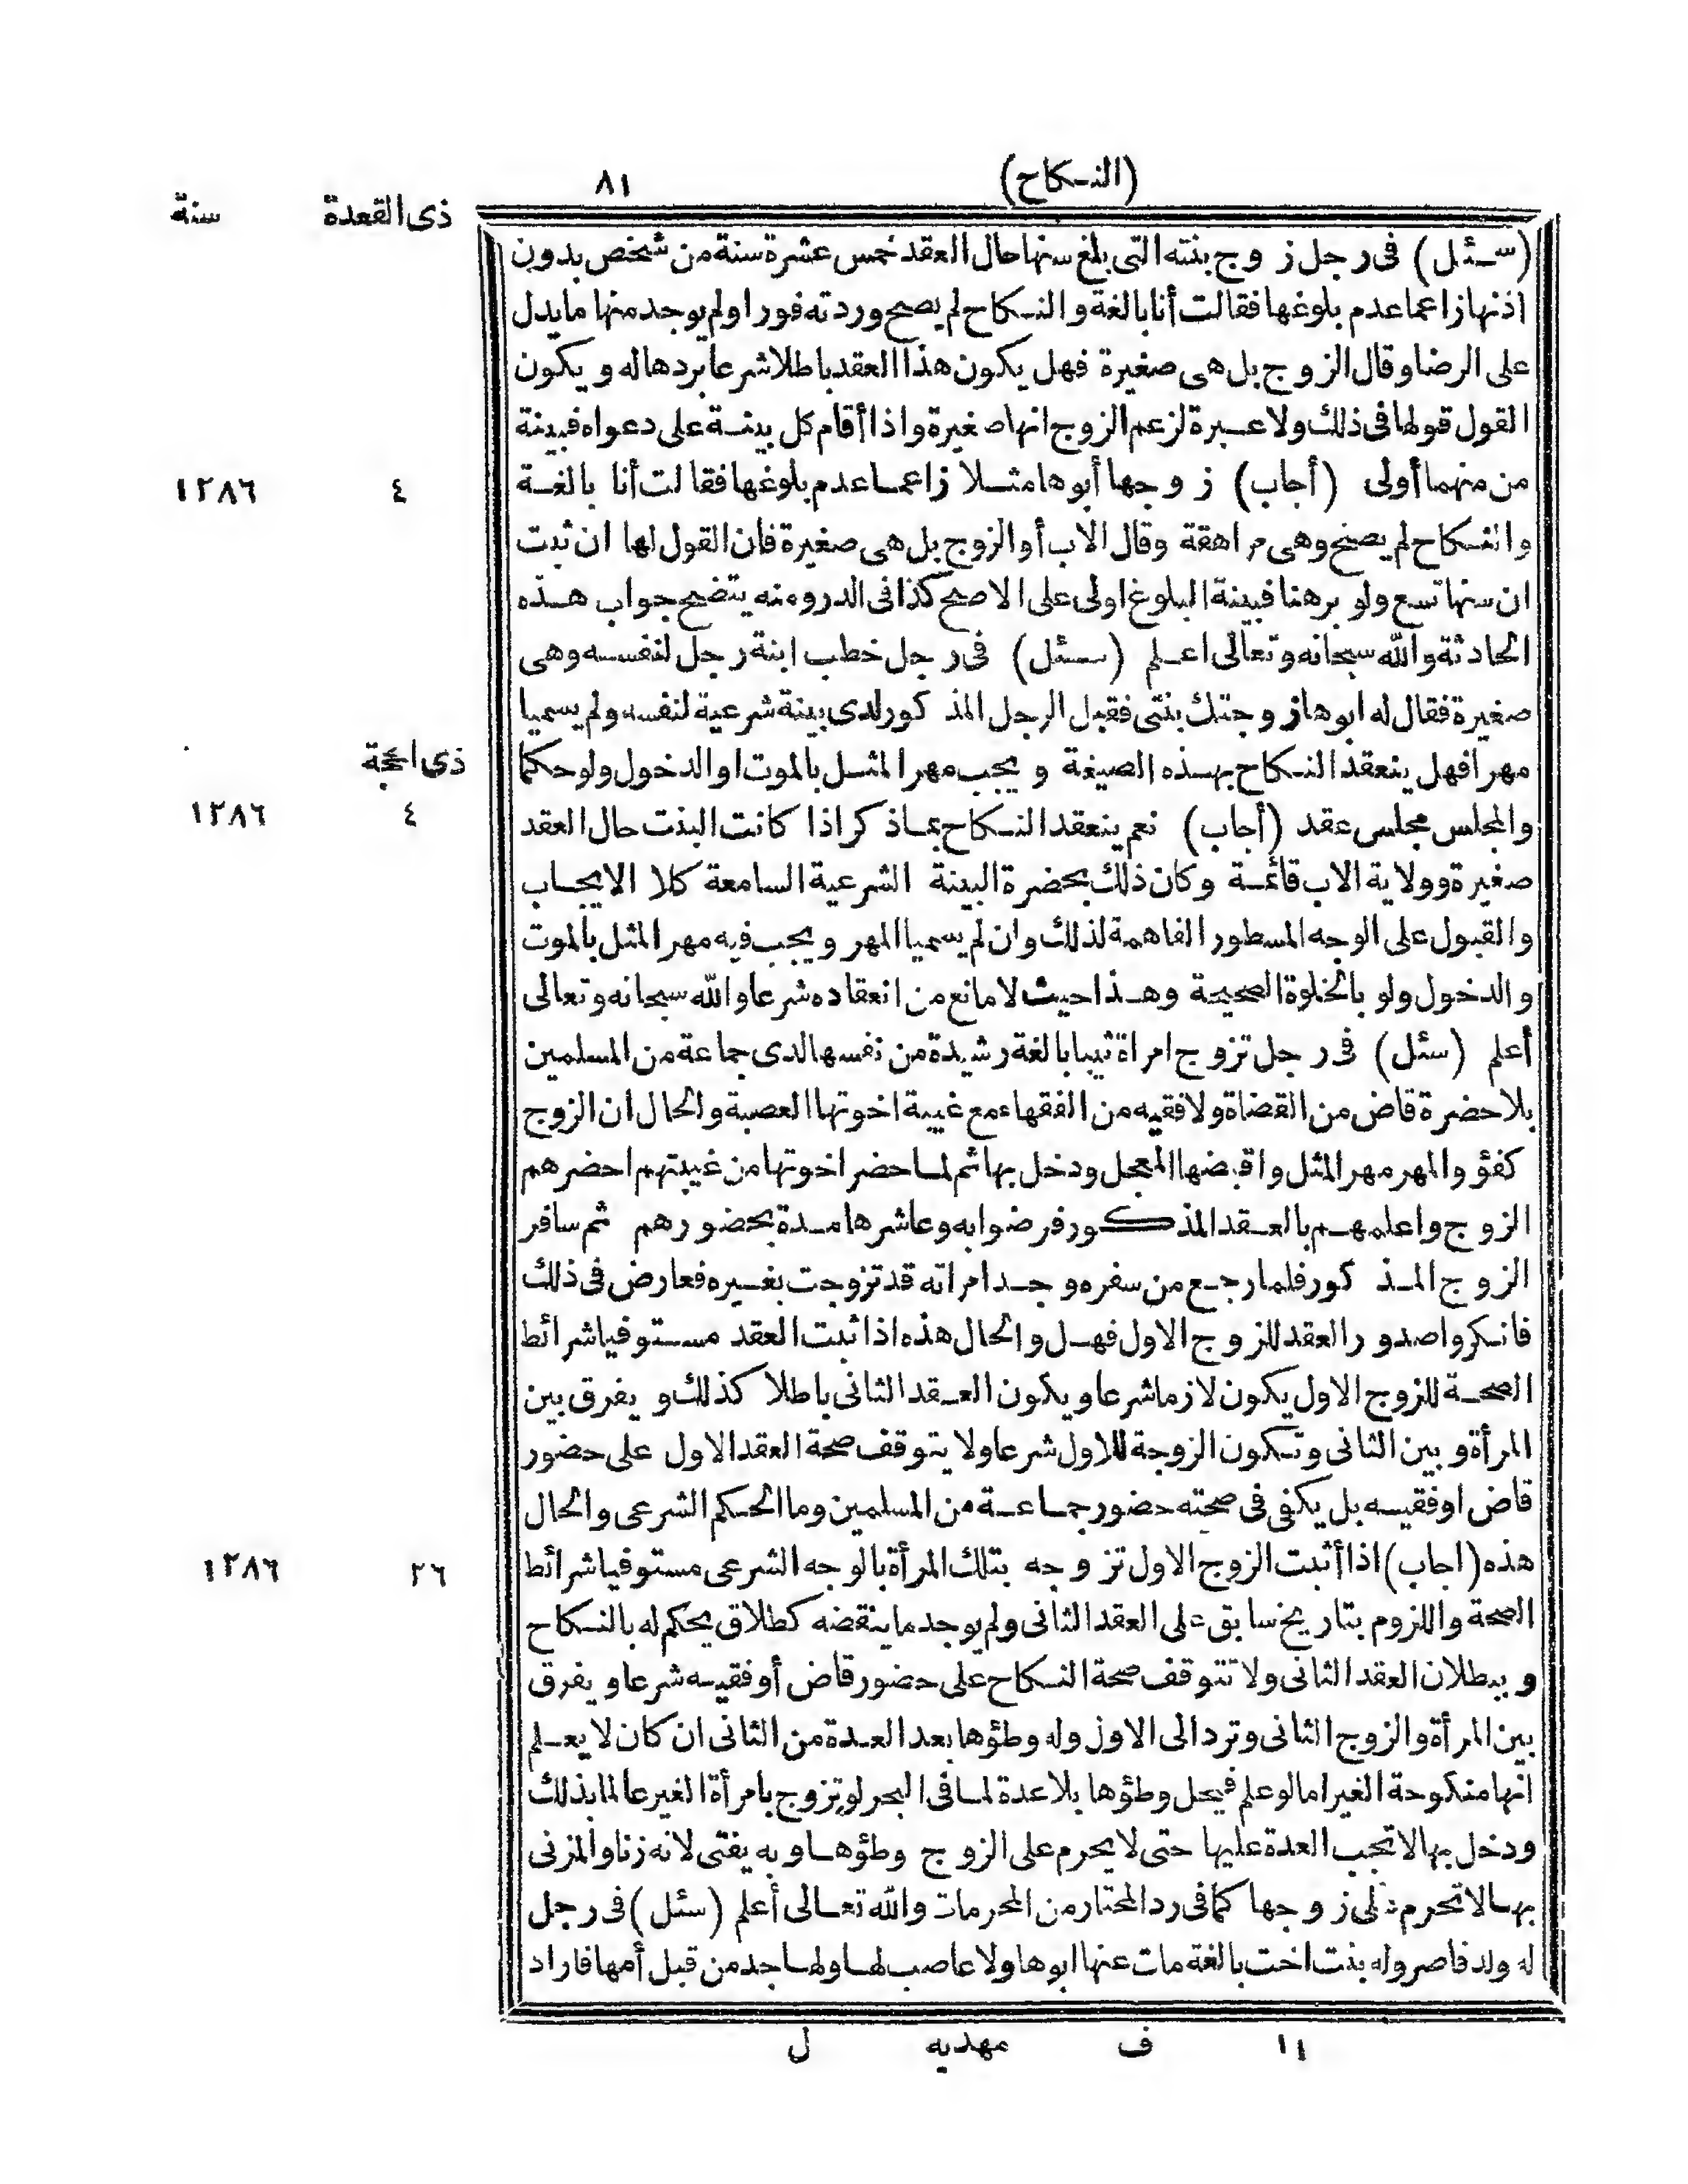 (النكاح) ٨١
ذى القعدة سنة
(سئل) فى رجل زوج بنته التى بلغ سنها حال العقد خمس عشرة سنة من شخص بدون
اذنها زاعما عدم بلوغها فقالت أنا بالغة والنكاح لم يصح وردته فورا ولم يوجد منها ما يدل
على الرضا وقال الزوج بل هى صغيرة فهل يكون هذا العقد باطلا شرعا بردها له ويكون
القول قولها فى ذلك ولا عبرة لزعم الزوج انها صغيرة واذا أقام كل بينة على دعواه فبينة
من منهما أولى (أجاب) زوجها أبوها مثلا زاعما عدم بلوغها فقالت أنا بالغة
٤ ١٢٨٦
والنكاح لم يصح وهى مراهقة وقال الاب أو الزوج بل هى صغيرة فان القول لها ان ثبت
ان سنها تسع ولو برهنا فبينة البلوغ اولى على الاصح كذا فى الدر ومنه يتضح جواب هذه
الحادثة والله سبحانه وتعالى اعلم (سئل) فى رجل خطب ابنة رجل لنفسه وهى
صغيرة فقال له ابوها زوجتك بنتى فقبل الرجل المذكور لدى بينة شرعية لنفسه ولم يسميا
مهرا فهل ينعقد النكاح بهذه الصيغة ويجب مهر المثل بالموت او الدخول ولو حكما
ذى الحجة
والمجلس مجلس عقد (أجاب) نعم ينعقد النكاح بما ذكر اذا كانت البنت حال العقد
٤ ١٢٨٦
صغيرة وولاية الاب قائمة وكان ذلك بحضرة البينة الشرعية السامعة كلا الايجاب
والقبول على الوجه المسطور الفاهمة لذلك وان لم يسميا المهر ويجب فيه مهر المثل بالموت
والدخول ولو بالخلوة الصحيحة وهذا حيث لا مانع من انعقاده شرعا والله سبحانه وتعالى
أعلم (سئل) فى رجل تزوج امراة ثيبا بالغة رشيدة من نفسها لدى جماعة من المسلمين
بلا حضرة قاض من القضاة ولا فقيه من الفقهاء مع غيبة اخوتها العصبة والحال ان الزوج
كفؤ والمهر مهر المثل واقبضها المعجل ودخل بها ثم لما حضر اخوتها من غيبتهم احضرهم
الزوج واعلمهم بالعقد المذكور فرضوا به وعاشرها مدة بحضورهم ثم سافر
الزوج المذكور فلما رجع من سفره وجد امراته قد تزوجت بغيره فعارض فى ذلك
فانكروا صدور العقد للزوج الاول فهل والحال هذه اذا ثبت العقد مستوفيا شرائط
الصحة للزوج الاول يكون لازما شرعا ويكون العقد الثانى باطلا كذلك ويفرق بين
المرأة وبين الثانى وتكون الزوجة للاول شرعا ولا يتوقف صحة العقد الاول على حضور
قاض او فقيه بل يكفى فى صحته حضور جماعة من المسلمين وما الحكم الشرعى والحال
هذه (اجاب) اذا أثبت الزوج الاول تزوجه بتلك المرأة بالوجه الشرعى مستوفيا شرائط
٢٦ ١٢٨٦
الصحة واللزوم بتاريخ سابق على العقد الثانى ولم يوجد ما ينقضه كطلاق يحكم له بالنكاح
وببطلان العقد الثانى ولا تتوقف صحة النكاح على حضور قاض أو فقيه شرعا ويفرق
بين المرأة والزوج الثانى وترد الى الاول وله وطؤها بعد العدة من الثانى ان كان لا يعلم
انها منكوحة الغير اما لو علم فيحل وطؤها بلا عدة لما فى البحر لو تزوج بامرأة الغير عالما بذلك
ودخل بها لا تجب العدة عليها حتى لا يحرم على الزوج وطؤها وبه يفتى لانه زنا والمزنى
بها لا تحرم على زوجها كما فى رد المحتار من المحرمات والله تعالى أعلم (سئل) فى رجل
له ولد قاصر وله بنت اخت بالغة مات عنها ابوها ولا عاصب لها ولها جد من قبل أمها فاراد
١١ ف مهديه ل